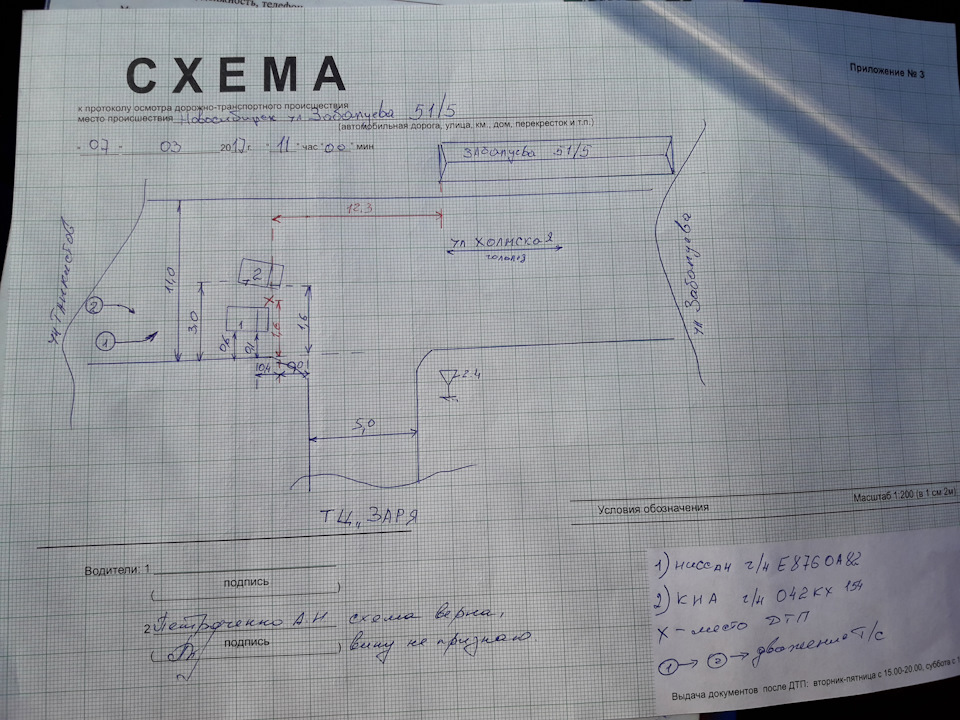 СХЕМА
Приложение № 3
к протоколу осмотра дорожно-транспортного происшествия
место происшествия Новосибирск ул Забалуева 51/5
(автомобильная дорога, улица, км., дом, перекресток и т.п.)
" 07 " 03 2017г. " 11 " час " 00 " мин
ЗАбалуева 51/5
12.3
ул ХОЛМСКАЯ
гололед
ул Танкистов
ул Забалуева
11,0
2
2
3,0
1,6
1,6
1
1
0,6
0,1
10,4
2.4
5,0
ТЦ „ЗАРЯ
Масштаб 1:200 (в 1 см 2м)
Условия обозначения
Водители: 1
( подпись )
2 Петроченко А.Н схема верна,
( подпись ) вину не признаю.
1) Ниссан г/н Е876ОА82
2) КИА г/н 042КХ 154
Х - место ДТП
1 → 2 → движение Т/с
Выдача документов после ДТП: вторник-пятница с 15.00-20.00, суббота с 1